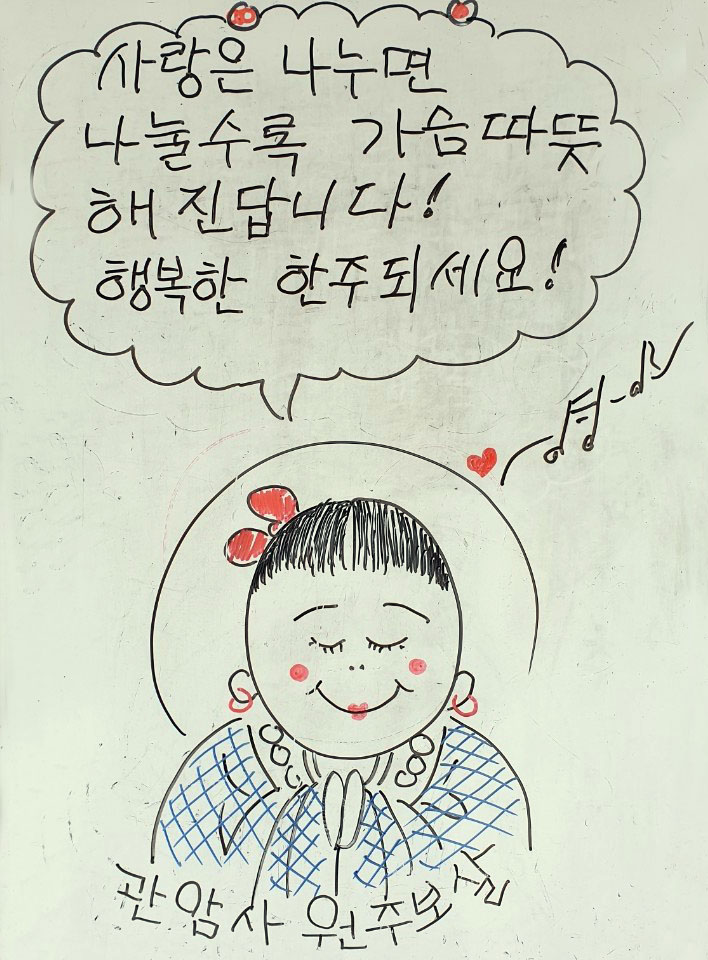 사랑은 나누면
나눌수록 가슴따뜻
해진답니다!
행복한 한주되세요!
관암사 원주보살